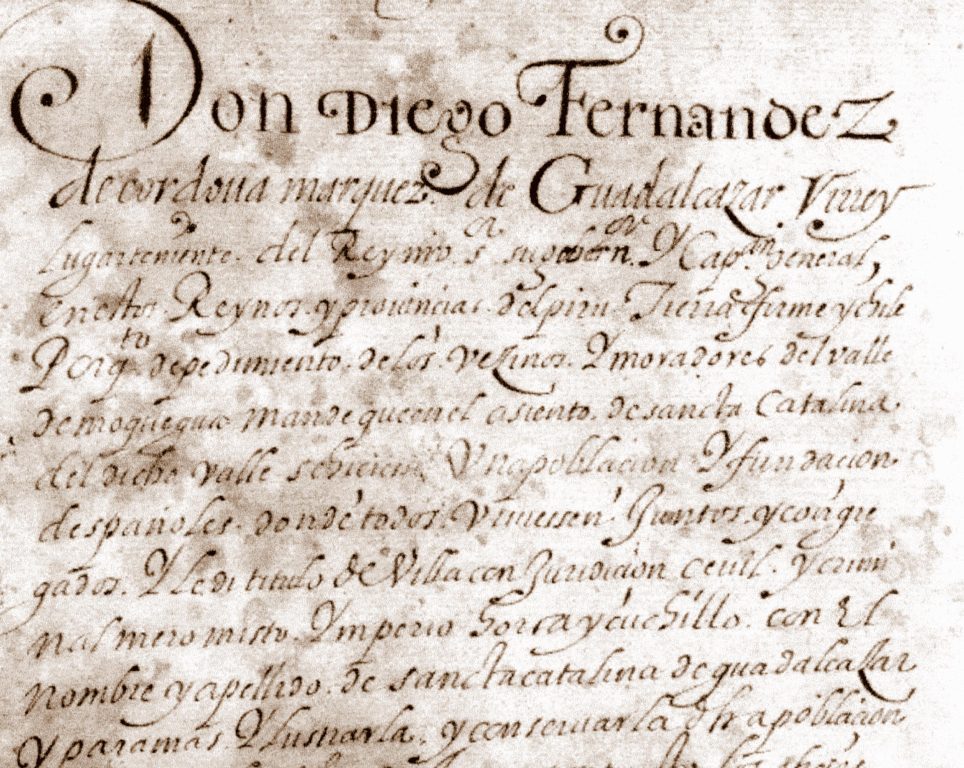 Don Diego Fernandez
de cordova marquez. de Guadalcazar Virrey
Lugarteniente. del Rey nro. sr. su govern.or Y Cap.an general,
en estos Reynos. y provincias. del piru Tierra firme y chile
Por q.to de pedimiento. de los. vezinos. Y moradores del valle
de moquegua mande que en el asiento. de sancta Catalina
del dicho valle se hiciese Una poblacion Y fundacion
de españoles. donde todos. viviessen Juntos. y congre
gados. Y le di titulo de Villa con Juridicion cevil. y crimi
nal mero misto Ymperio horca y cuchillo. con el
nombre y apellido. de sancta catalina de guadalcazar
Y para mas. Ylustrarla. y conservarla dha poblacion